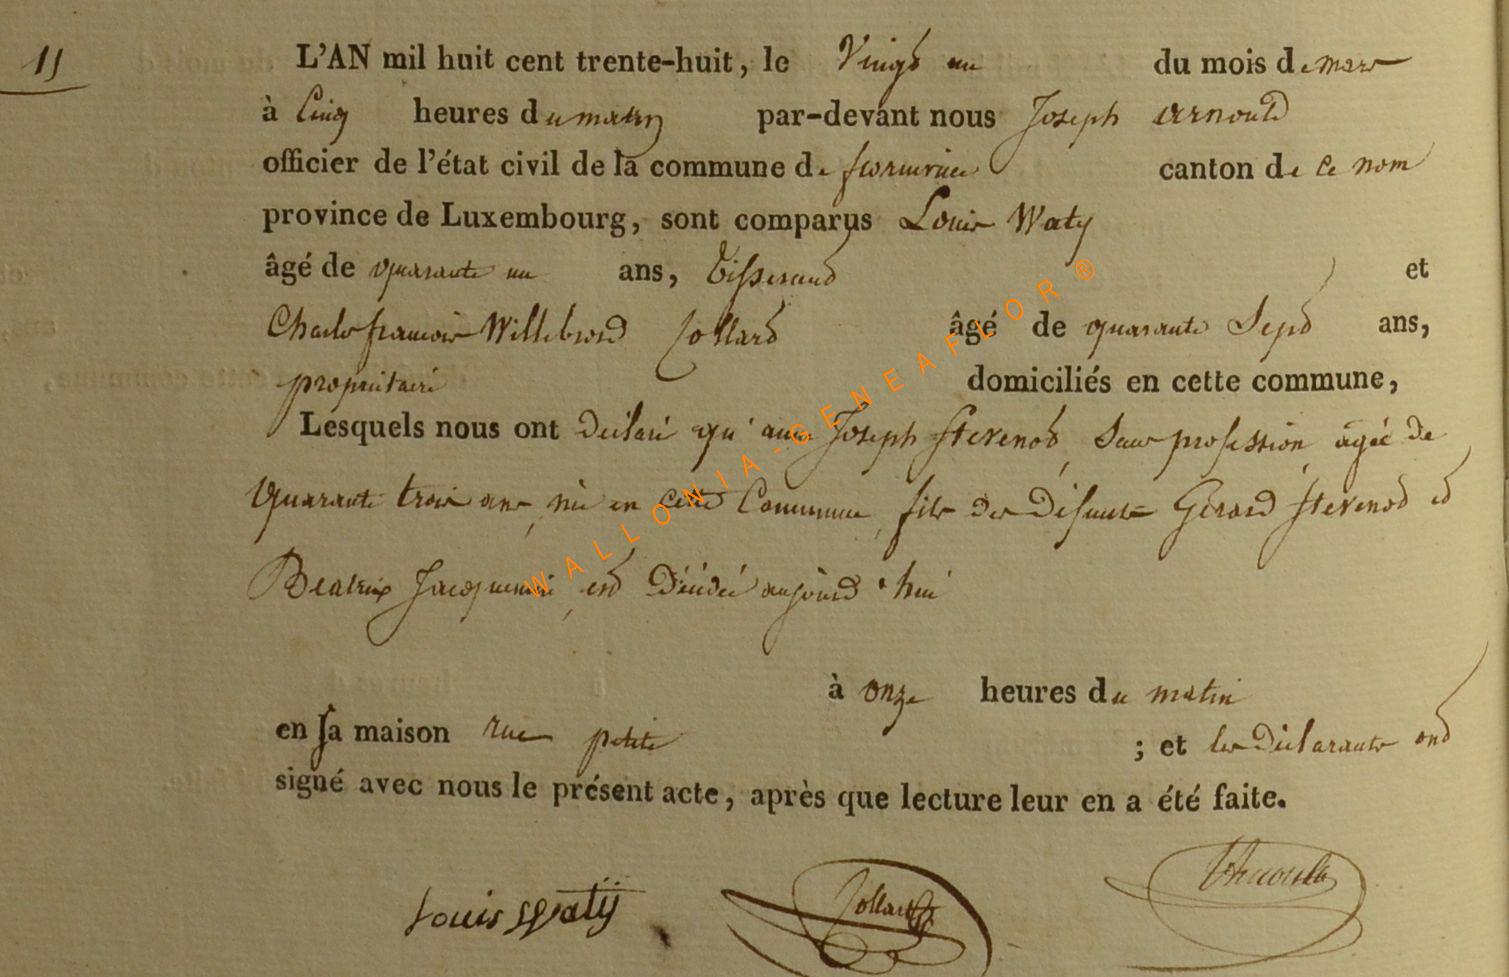 11
L'AN mil huit cent trente-huit, le Vingt un du mois de mars
à Cinq heures du matin par-devant nous Joseph Arnould
officier de l'état civil de la commune de florenville canton de ce nom
province de Luxembourg, sont comparus Louis Waty
âgé de quarante un ans, tisserand et
Charles françois Willebrord Collard âgé de quarante Sept ans,
propriétaire domiciliés en cette commune,
Lesquels nous ont déclaré qu'aux Joseph Stevenot, Sans profession âgé de
Quarante trois ans, né en cette Commune, fils des Défunts Gérard Stevenot et
Beatrix Jacquemin, est Décédé aujourd'hui
à onze heures du matin
en sa maison rue petite ; et les Déclarants ont
signé avec nous le présent acte, après que lecture leur en a été faite.
Louis Watÿ Collard Arnould
WALLONIA-GENEAFLOR®